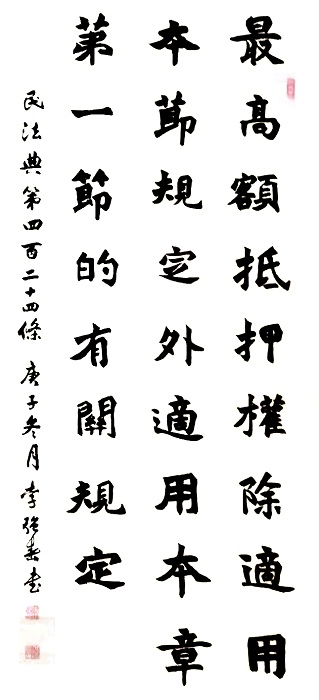 最高額抵押權除適用
本節規定外適用本章
第一節的有關規定
民法典第四百二十四條 庚子冬月 李強書